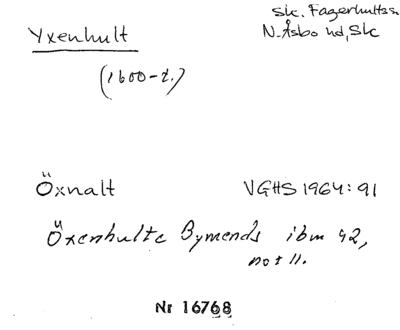 Yxenhult
Sk. Fagerhults s.
N. Åsbo hd, Sk
(1600-t.)
Öxnalt VGHS 1964: 91
Öxenhulte Bymends ibm 92,
not 11.
Nr 16768